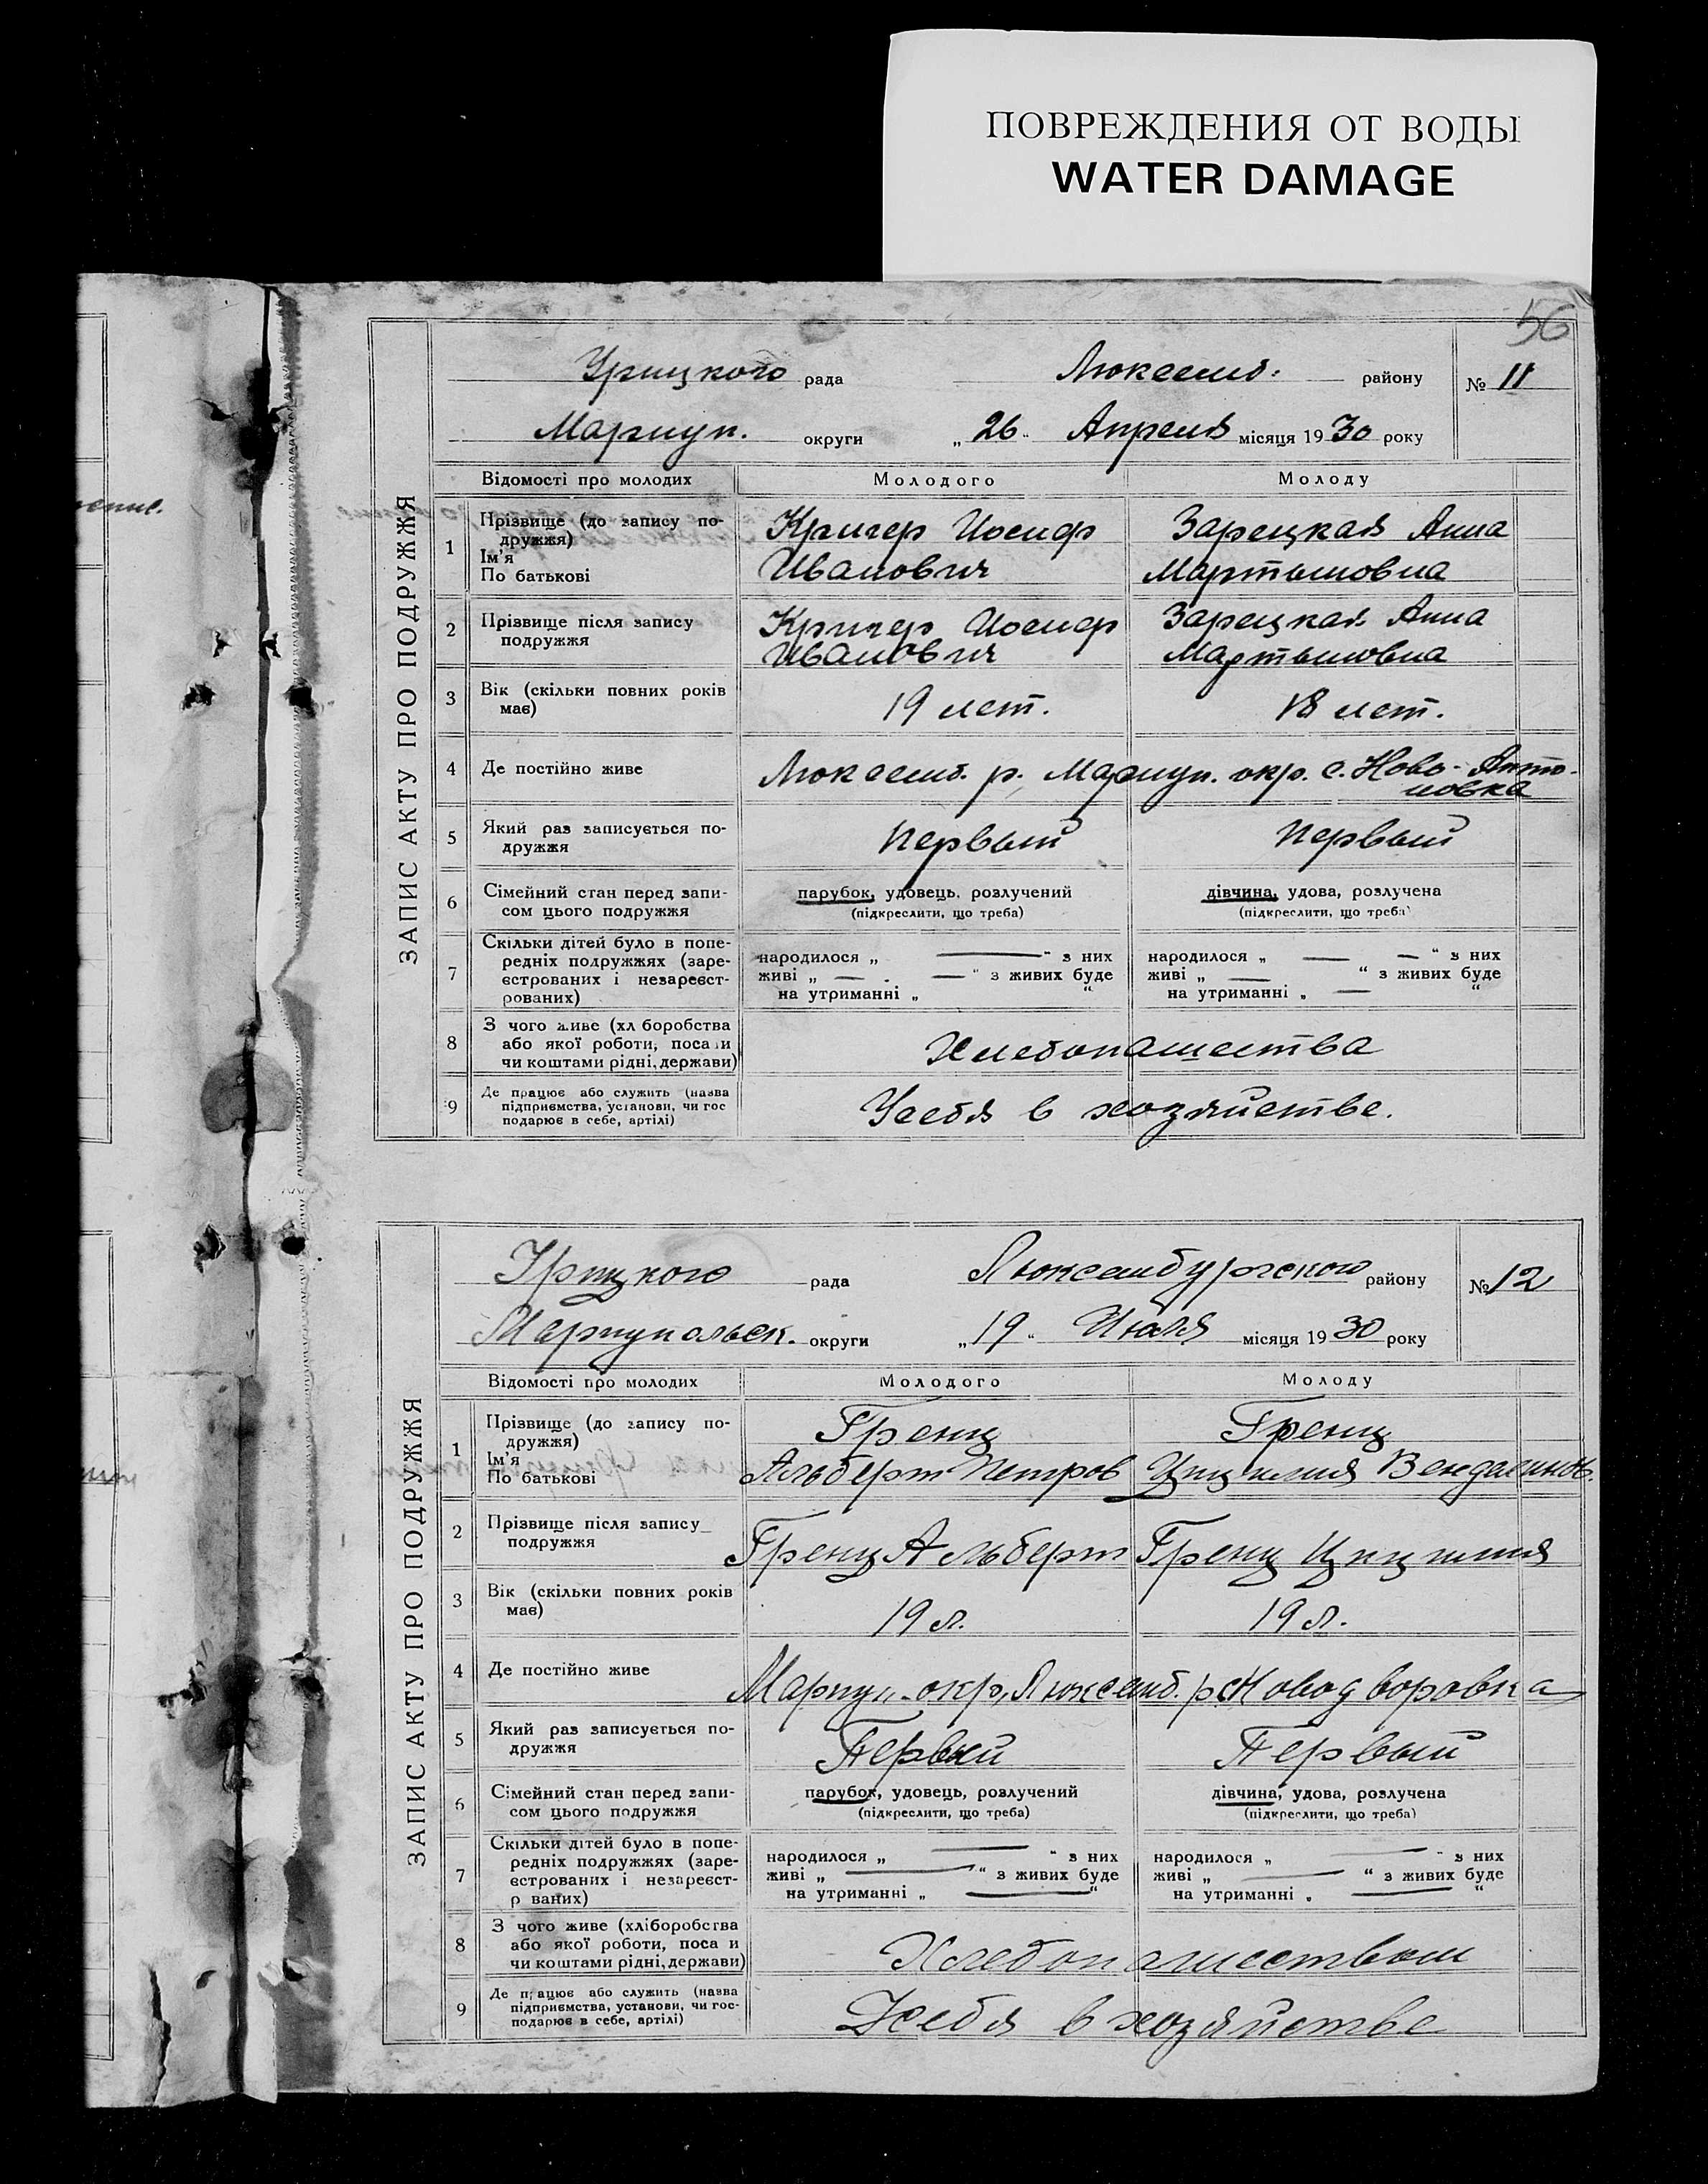 ПОВРЕЖДЕНИЯ ОТ ВОДЫ
WATER DAMAGE
56
ЗАПИС АКТУ ПРО ПОДРУЖЖЯ
Урицкого рада Люксемб. району № 11
Мариуп. округи „26" Апреля місяця 1930 року
Відомості про молодих Молодого Молоду
1 Прізвище (до запису подружжя) Ім'я По батькові
Кригер Иосиф Зарецкая Анна
Иванович Мартыновна
2 Прізвище після запису подружжя
Кригер Иосиф Зарецкая Анна
Иванович Мартыновна
3 Вік (скільки повних років має) 19 лет. 18 лет.
4 Де постійно живе Люксемб. р. Мариуп. окр. с. Ново-Анто-
новка
5 Який раз записується по-
дружжя Первый Первый
6 Сімейний стан перед запи- парубок, удовець, розлучений дівчина, удова, розлучена
сом цього подружжя (підкреслити, що треба) (підкреслити, що треба)
7 Скільки дітей було в попе-
редніх подружжях (заре-
єстрованих і незареєст-
рованих)
народилося „ — " з них народилося „ — — " з них
живі „ — — " з живих буде живі „ — " з живих буде
на утриманні „ " на утриманні „ — "
8 З чого живе (хл боробства
або якої роботи, поса и
чи коштами рідні, держави)
Хлебопашества
9 Де працює або служить (назва
підприємства, установи, чи гос
подарює в себе, артілі)
У себя в хозяйстве.
ЗАПИС АКТУ ПРО ПОДРУЖЖЯ
Урицкого рада Люксембургского району № 12
Мариупольск. округи „19" Июля місяця 1930 року
Відомості про молодих Молодого Молоду
1 Прізвище (до запису по-
дружжя)
Ім'я
По батькові
Гренц Гренц
Альберт Петров Цицилия Вендалинов.
2 Прізвище після запису
подружжя
Гренц Альберт Гренц Цицилия
3 Вік (скільки повних років
має) 19 л. 19 л.
4 Де постійно живе Мариуп. окр, Люксемб. р с Новодворовка
5 Який раз записується по-
дружжя Первый Первый
6 Сімейний стан перед запи- парубок, удовець, розлучений дівчина, удова, розлучена
сом цього подружжя (підкреслити, що треба) (підкреслити, що треба)
7 Скільки дітей було в попе-
редніх подружжях (заре-
єстрованих і незареєст-
р ваних)
народилося „ — " з них народилося „ — " з них
живі „ — " з живих буде живі „ — " з живих буде
на утриманні „ — " на утриманні „ — "
8 З чого живе (хліборобства
або якої роботи, поса и
чи коштами рідні, держави)
Хлебопашеством
9 Де працює або служить (назва
підприємства, установи, чи гос-
подарює в себе, артілі)
У себя в хозяйстве